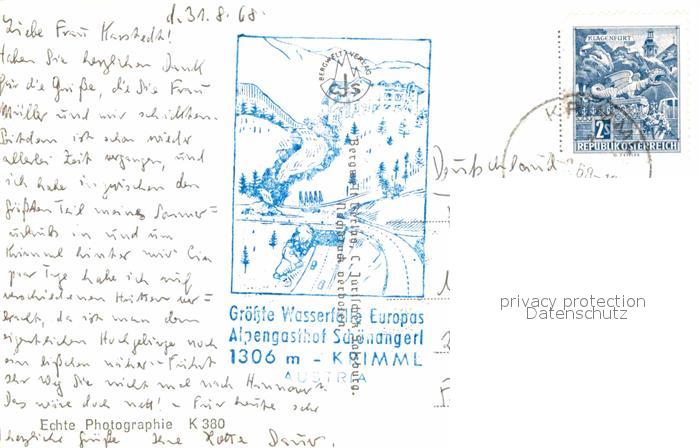 d. 31.8.68.
Liebe Frau Karstedt!
Haben Sie herzlichen Dank
für die Grüße, die Sie Frau
Müller und mir schickten.
Seitdem ist schon wieder
allerlei Zeit vergangen, und
ich habe inzwischen den
größten Teil meines Sommer=
urlaubs in und um
Krimml hinter mir. Ein
paar Tage habe ich auf
verschiedenen Hütten ver=
bracht, da ist man dem
eigentlichen Hochgebirge noch
ein bißchen näher. – Führt
Ihr Weg Sie nicht mal nach Hannover?
Das wäre doch nett! – Für heute sehr
herzliche Grüße Ihre Dauer.
Echte Photographie K 380
BERGWELT VERLAG
CJS
Bergwelt Verlag, C. Jurischek, Salzburg.
Nachdruck verboten.
Größte Wasserfälle Europas
Alpengasthof Schönangerl
1306 m - KRIMML
AUSTRIA
KLAGENFURT
2S
REPUBLIK ÖSTERREICH
KRI
Deutschland
privacy protection
Datenschutz